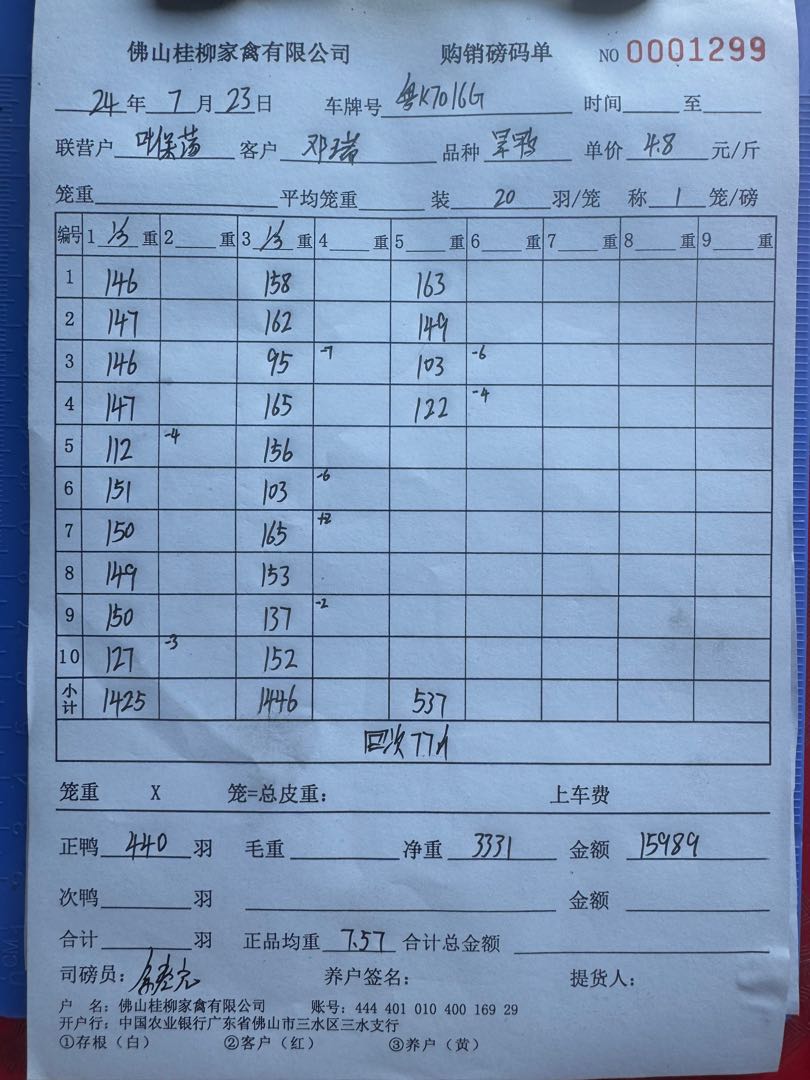 佛山桂柳家禽有限公司 购销磅码单 NO 0001299
24年 7月 23日 车牌号 粤K7016G 时间 至
联营户 叶保 客户 邓 品种 旱鸭 单价 4.8 元/斤
笼重 平均笼重 装 20 羽/笼 称 1 笼/磅
编号 1 1/3 重 2 重 3 1/3 重 4 重 5 重 6 重 7 重 8 重 9 重
1 146 158 163
2 147 162 149
3 146 95 -7 103 -6
4 147 165 122 -4
5 112 -4 156
6 151 103 -6
7 150 165 +2
8 149 153
9 150 137 -2
10 127 -3 152
小计 1425 1446 537
回次77斤
笼重 X 笼=总皮重： 上车费
正鸭 440 羽 毛重 净重 3331 金额 15989
次鸭 羽 金额
合计 羽 正品均重 7.57 合计总金额
司磅员： 养户签名： 提货人：
户 名：佛山桂柳家禽有限公司 账号：444 401 010 400 169 29
开户行：中国农业银行广东省佛山市三水区三水支行
①存根（白） ②客户（红） ③养户（黄）